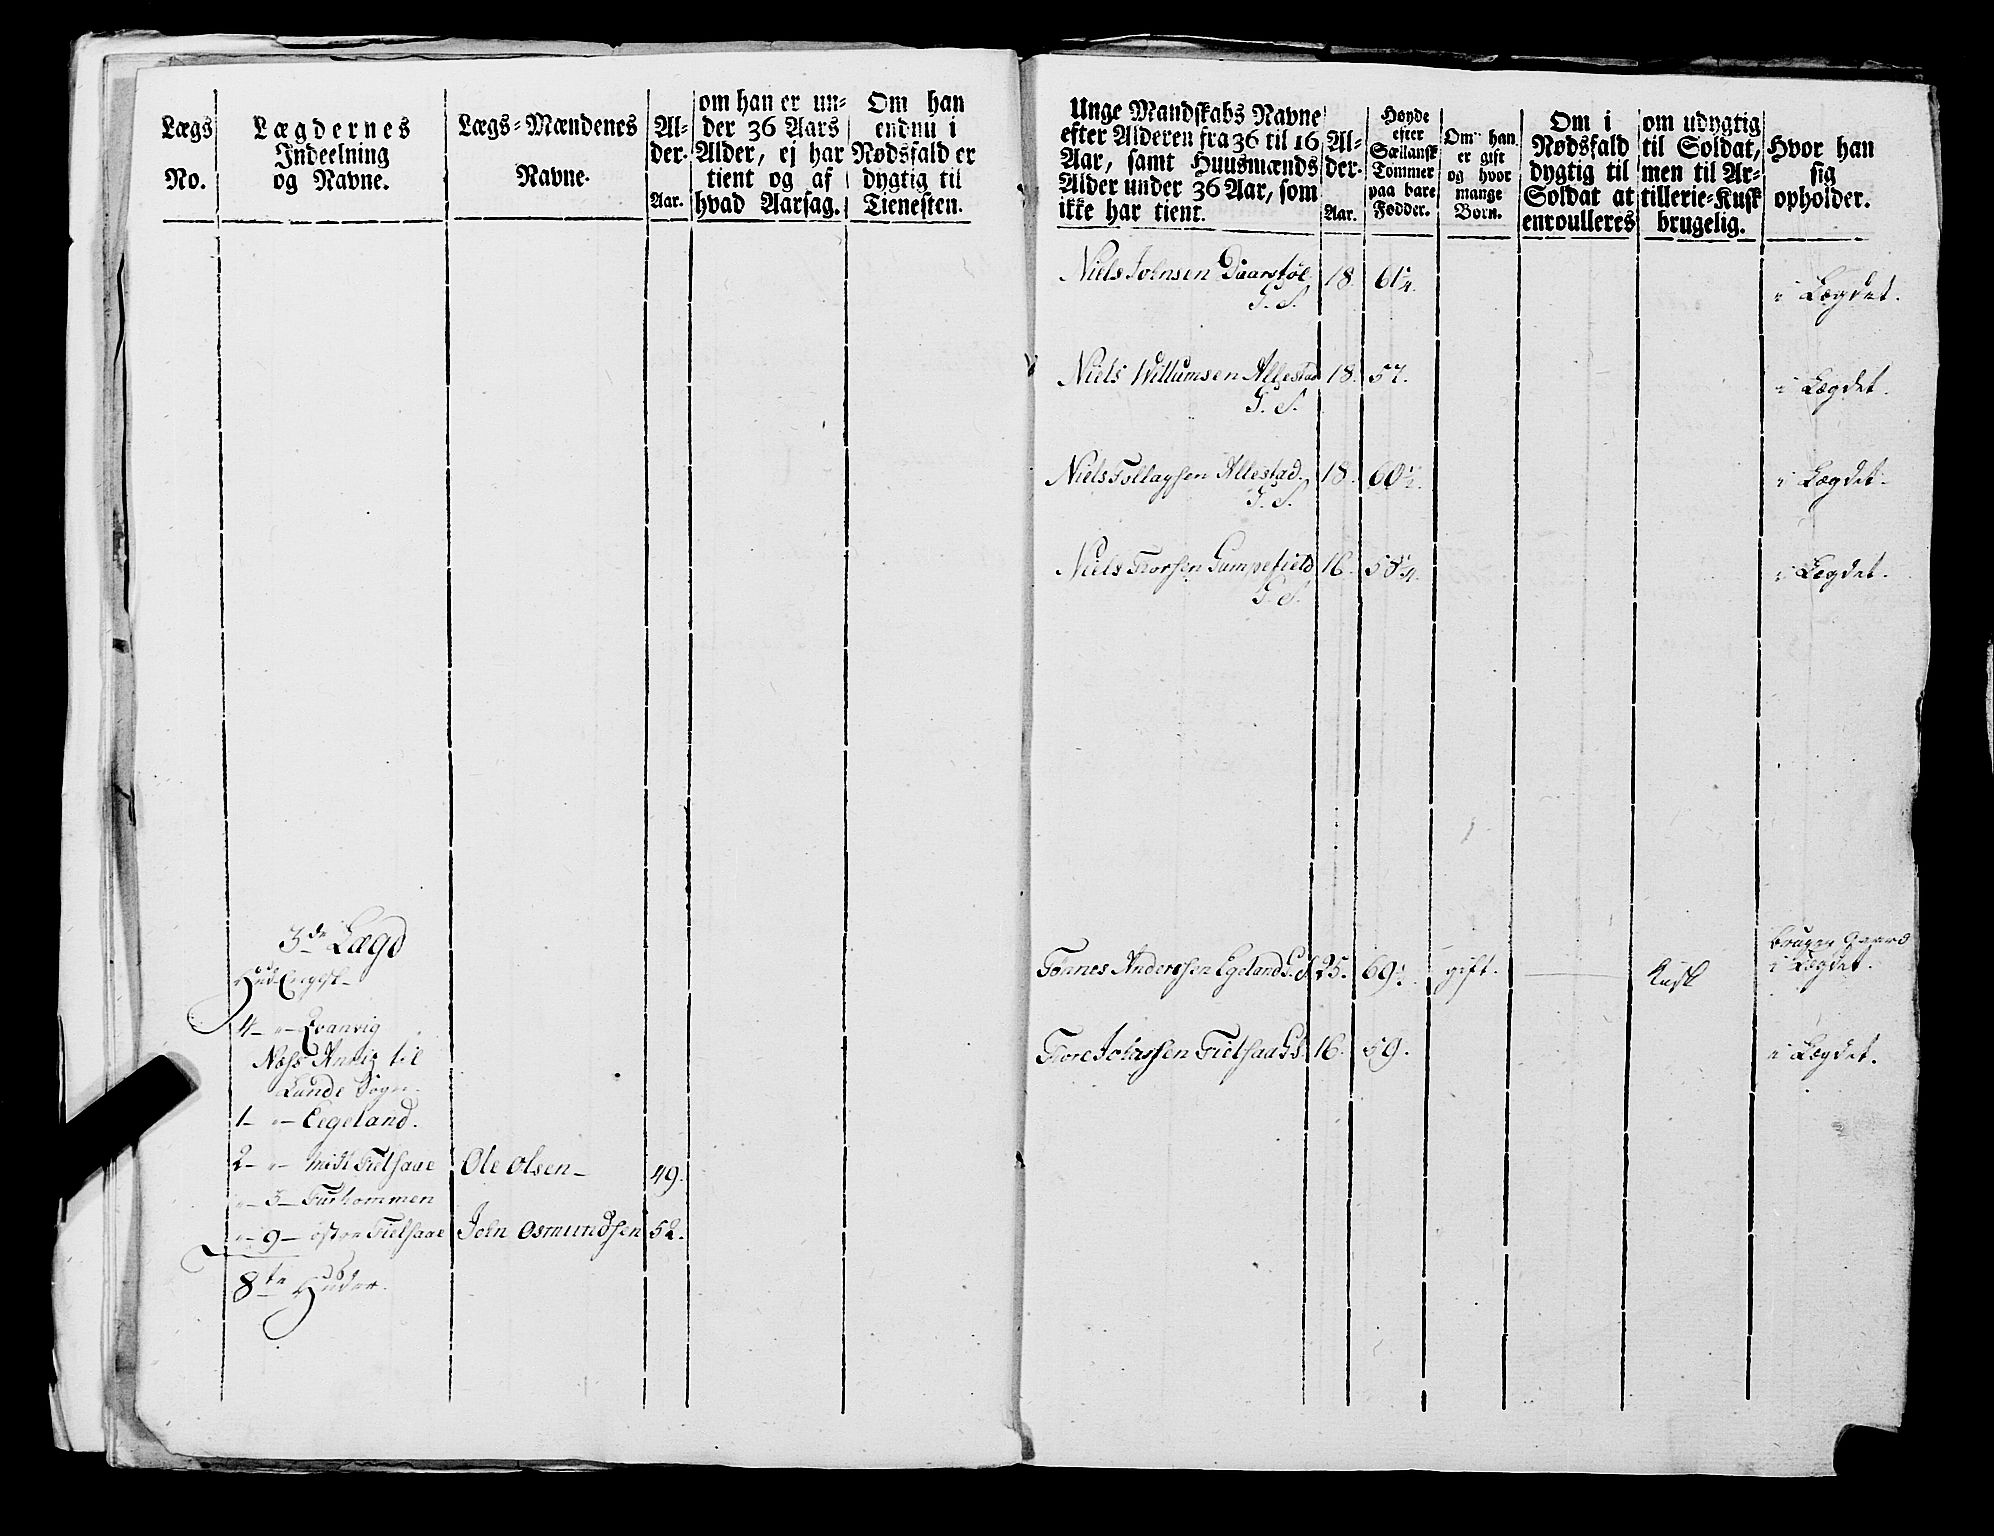 Lægs
No.
Lægdernes
Indeelning
og Navne.
Lægs-Mændenes
Navne.
Al-
der.
Aar.
om han er un-
der 36 Aars
Alder, ej har
tient og af
hvad Aarsag.
Om han
endnu i
Nødsfald er
dygtig til
Tienesten.
3de Lægd
4 - " - Qvanvig
til
Lunde Sogn
1 - " - Eegeland.
2 - " - Midt Fielsaae
Ole Olsen -
49.
" - 3 -
" - 9 - østre Fielsaae
John Osmundsen
52.
8te Huder.
Unge Mandskabs Navne
efter Alderen fra 36 til 16
Aar, samt Huusmænds
Alder under 36 Aar, som
ikke har tient.
Al-
der.
Aar.
Høyde
efter
Siællansk
Tommer
paa bare
Fødder.
Om han
er gift
og hvor
mange
Børn.
Om i
Nødsfald
dygtig til
Soldat at
enroulleres
om udygtig
til Soldat,
men til Ar-
tillerie-Kusk
brugelig.
Hvor han
sig
opholder.
Niels Johnsen Daarstøl
18. 61 1/4.
G. S.
i Lægdet.
Niels Willumsen Allestad
18. 57.
G. S.
i Lægdet.
Niels Tollagsen Allestad.
18. 60 1/2.
G. S.
i Lægdet.
Niels Thorsen Gumpefield
16. 58 1/4.
G. S.
i Lægdet.
Tønnes Anderssen Egeland G. S.
25. 69 1/2. gift. Kusk
bruger Gaard
i Lægdet.
Thore Johnssen Fielsaa G. S.
16. 59.
i Lægdet.